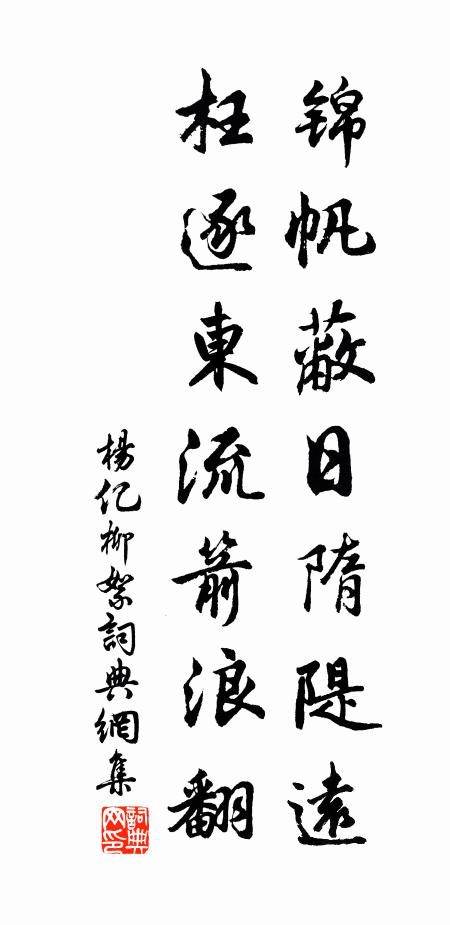 锦帆蔽日隋隄遠
枉逐東流箭浪翻
楊亿柳絮詞典網集
詞典
网印